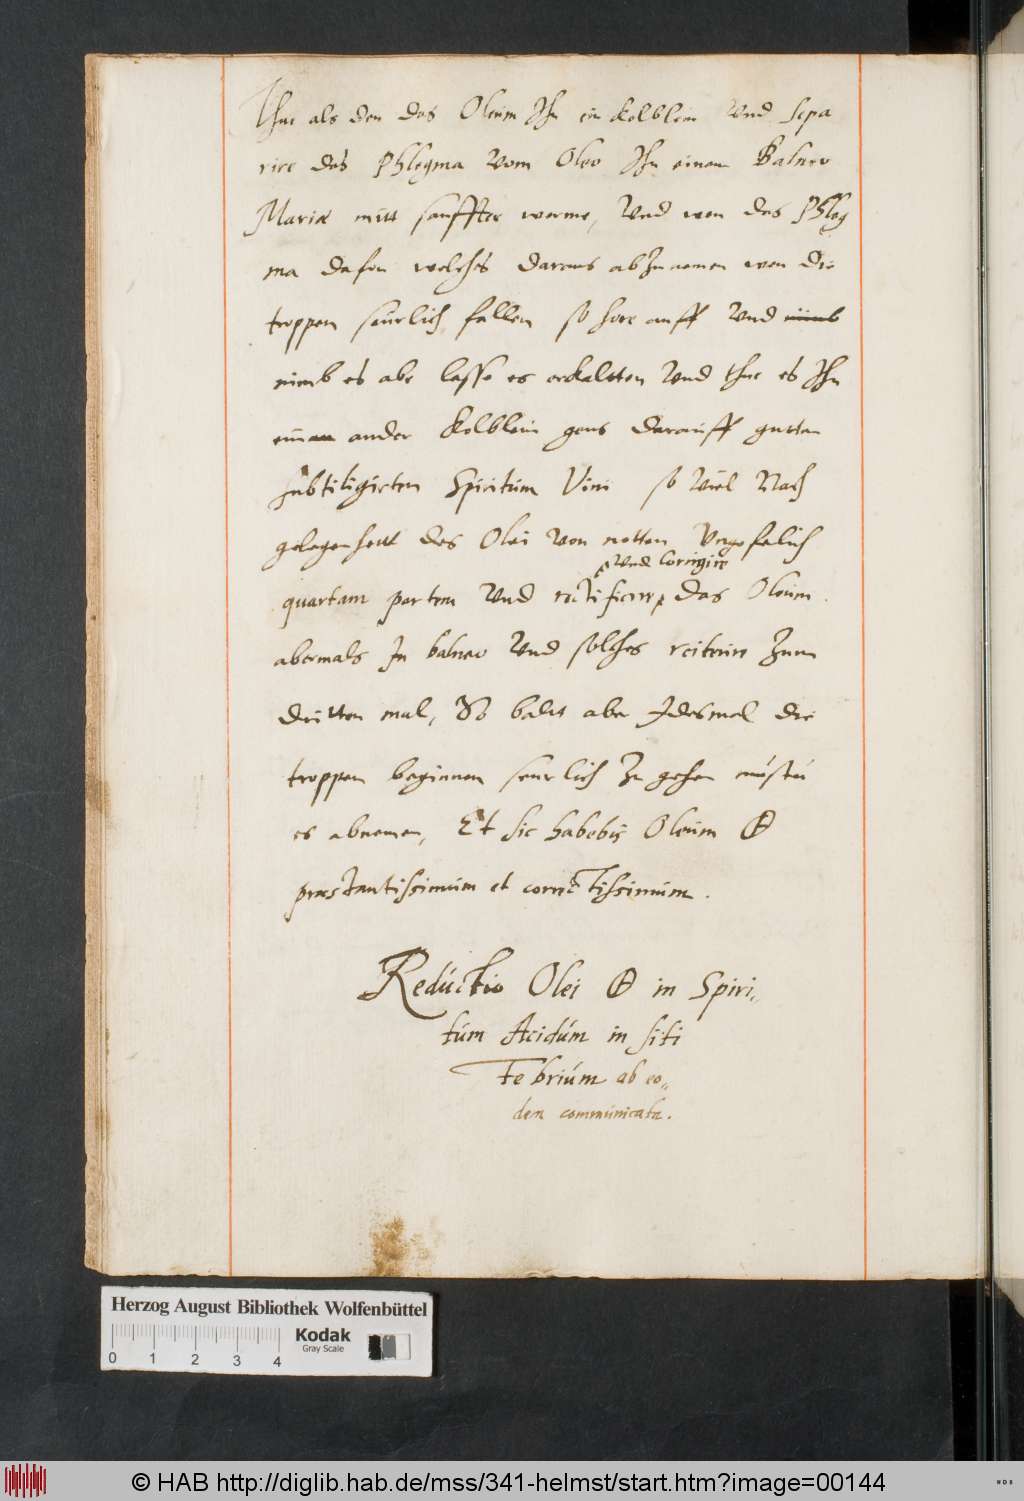 Thue als den das Oleum Ihn ein Kolblein Und sepa
rire das Phlegma Vom Oleo Ihn einem Balneo
Mariæ mitt sauffter werme, Und wen das Phleg
ma dafon welches daraus abzunemen wen die
troppen seurlich fallen so hore auff Und nimb
nimb es abe lasse es erkaltten Und thue es Ihn
einen ander Kolblein geus darauff gutten
subtiligirten Spiritum Vini so Viel Nach
gelegenheitt des Olei von notten Ungefelich
Und Corrigir
quartam partem Und rectificir das Oleum.
abermals In balneo Und solches reiterire Zum
dritten mal, So baltt aber Idesmal die
troppen beginnen seurlich Zu gehen mustu
es abnemen, Et sic habebis Oleum
præstantissimum et correctissimum.
Reductio Olei in Spiri„
tum Acidum in siti
Febrium ab eo„
dem communicata.
Herzog August Bibliothek Wolfenbüttel
Kodak
Gray Scale
0 1 2 3 4
© HAB http://diglib.hab.de/mss/341-helmst/start.htm?image=00144